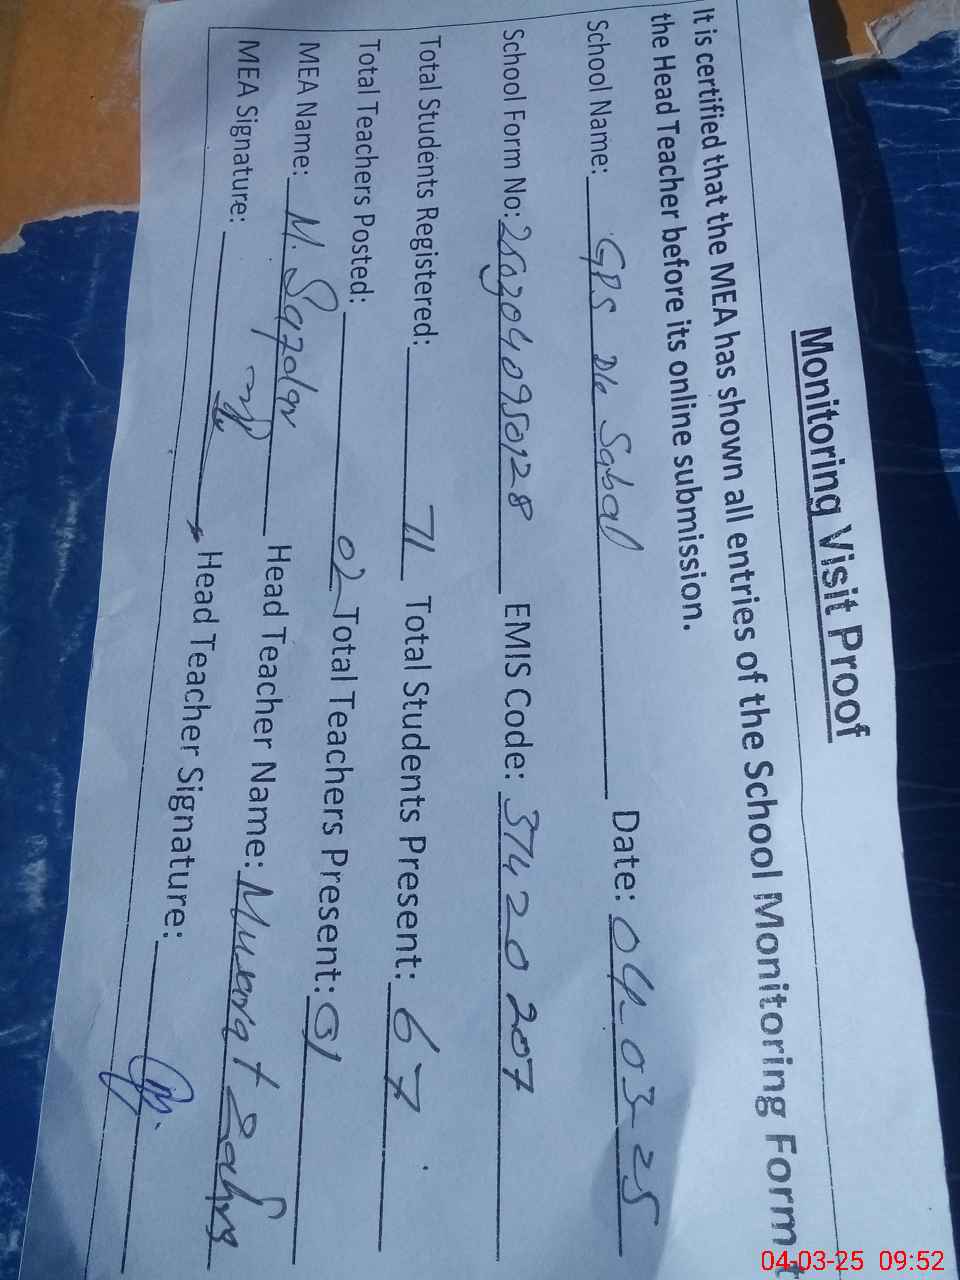 Monitoring Visit Proof
It is certified that the MEA has shown all entries of the School Monitoring Form t
the Head Teacher before its online submission.
School Name: GPS Dk Sabal Date: 04-03-25
School Form No: 2503040950128 EMIS Code: 37420207
Total Students Registered: 71 Total Students Present: 67
Total Teachers Posted: 02 Total Teachers Present: 01
MEA Name: M. Safdar Head Teacher Name: Musarat
MEA Signature: Head Teacher Signature:
04-03-25 09:52